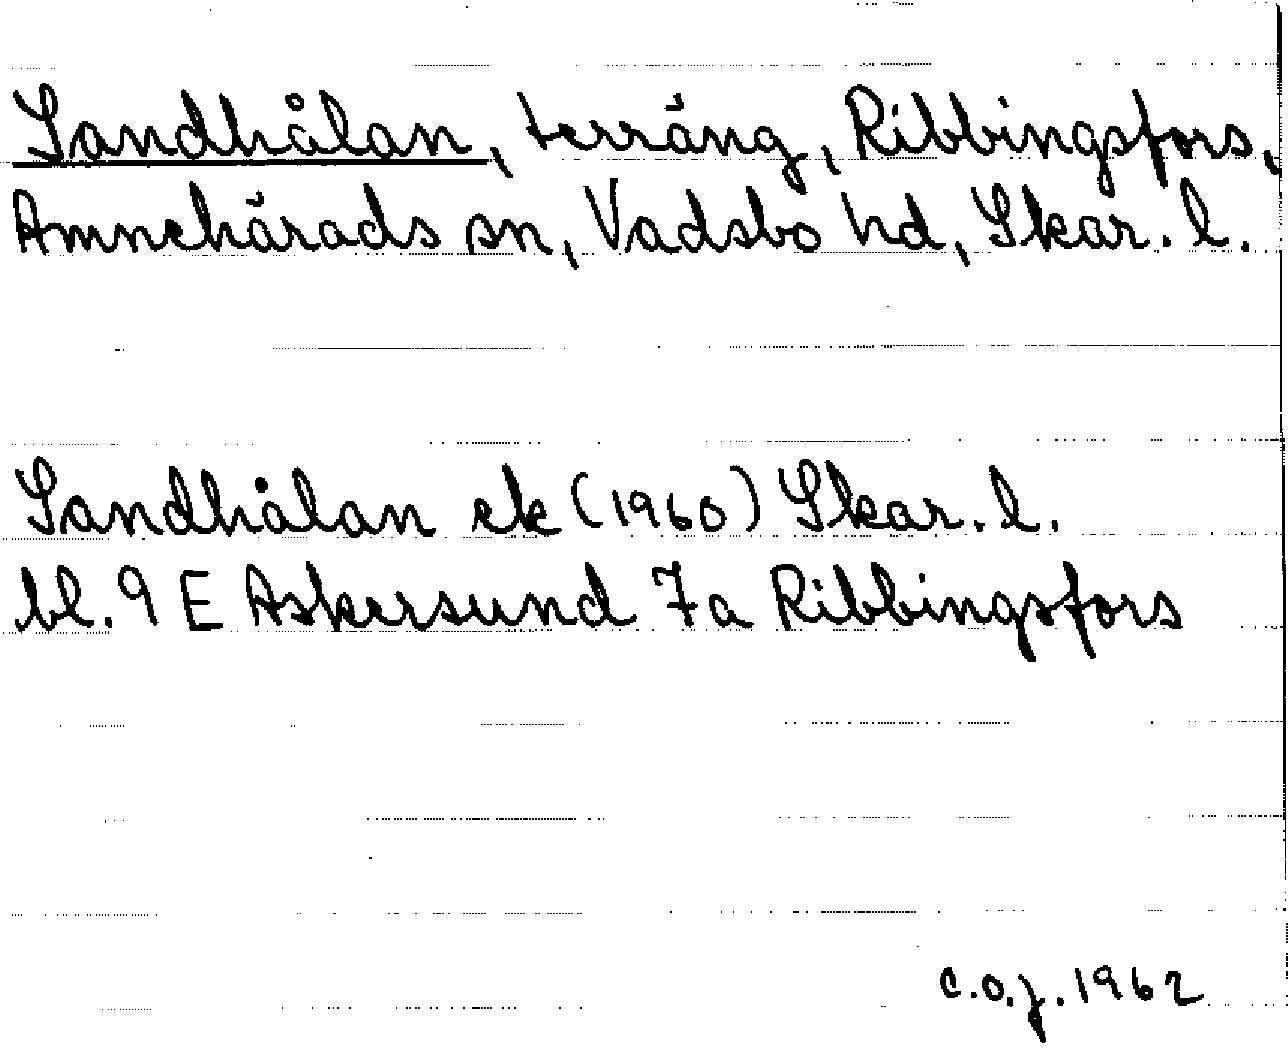 Sandhålan, terräng, Ribbingsfors,
Amnehärads sn, Vadsbo hd, Skar. l.
Sandhålan ek (1960) Skar. l.
bl. 9 E Askersund 7a Ribbingsfors
C.O.J. 1962